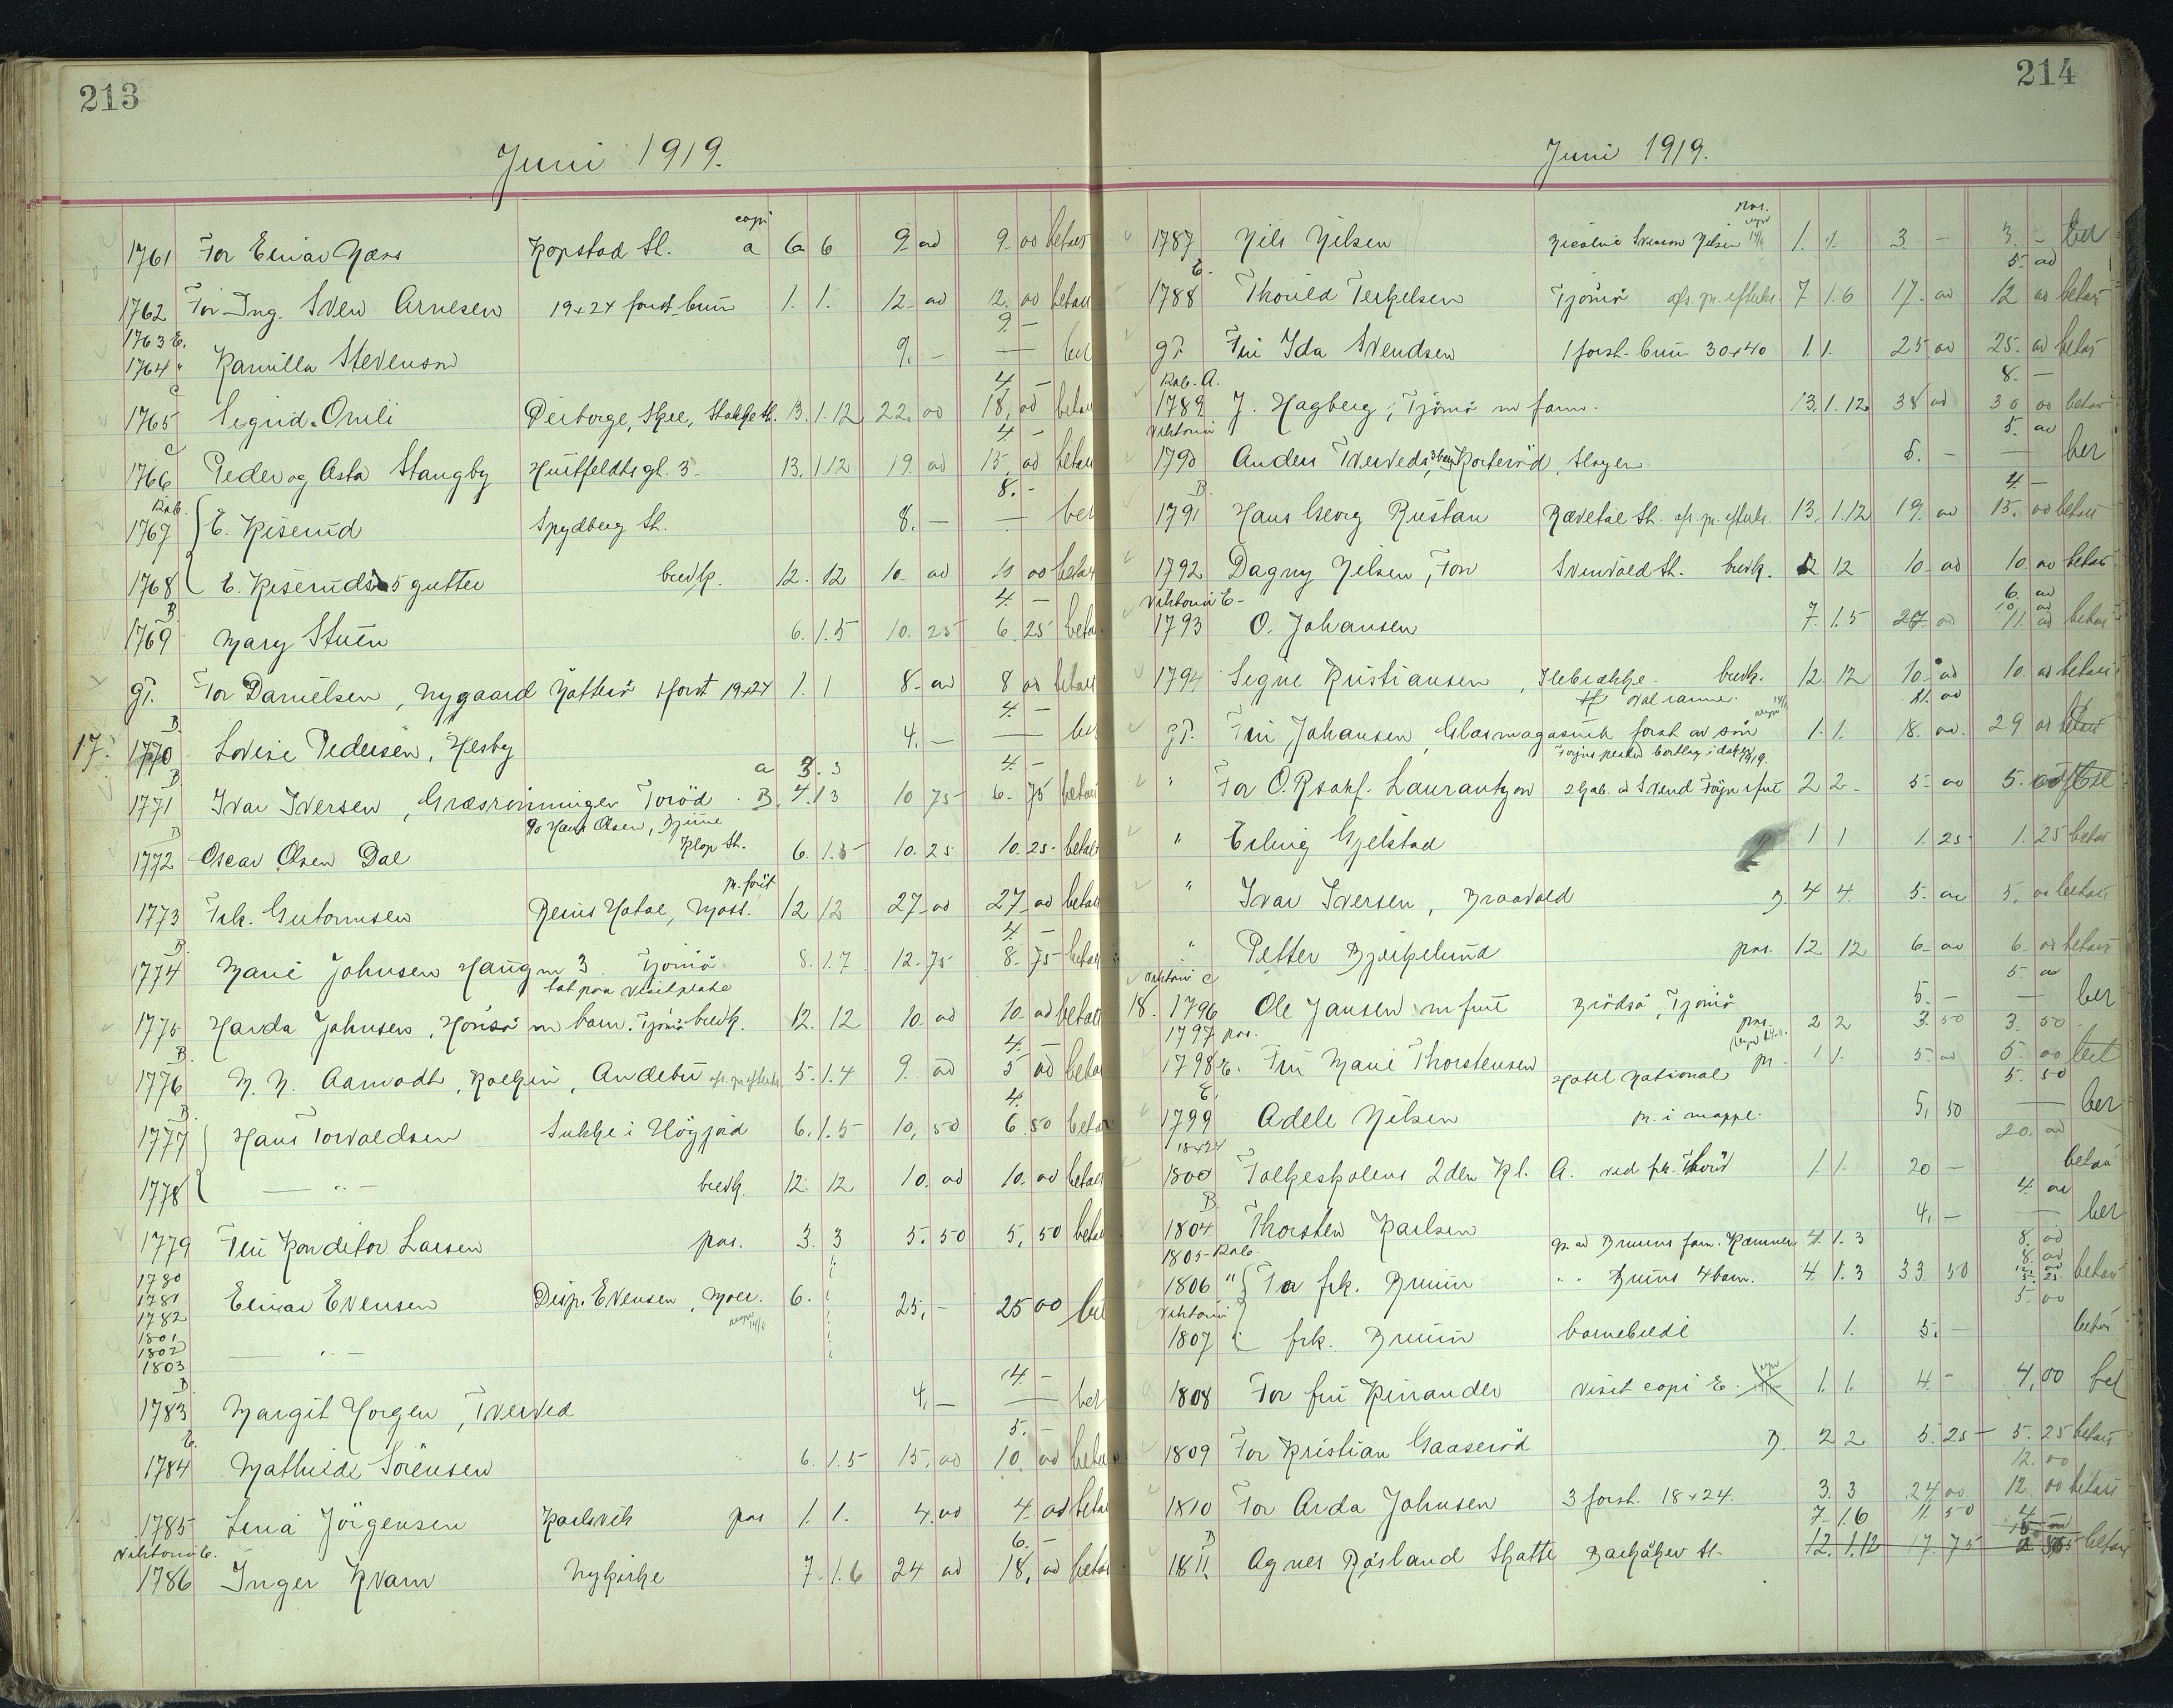 213
Juni 1919.
copi
1761 For Einar Næss Kopstad St. a 6 6 9 00 9 00 betalt
1762 For Ing. Sven Arnesen 19x24 forst. brun 1. 1. 12 00 12. 00 betalt
1763 E. 9 -
1764 " Kamilla Stevenson 9. - — bet
C 4 -
1765 Sigrid Omli Stokke St. 13. 1. 12 22. 00 18. 00 betalt
C 4 -
1766 Peder og Asta Stangby Huitfeldts gt. 3 13. 1 12 19. 00 15. 00 betalt
Kab. 8. -
1767 E. Kiserud Spydberg St. 8. - — bet
1768 E. Kiseruds 5 gutter brevk. 12. 12 10. 00 10 00 betalt
B. 4. -
1769 Mary Stuen 6. 1. 5 10. 25 6. 25 betalt
gt. For Danielsen, Nygaard Nötterö 1 forst 19x24 1. 1 8. 00 8 00 betalt
B. 4. -
17. 1770 Lovise Pedersen, Hesby 4. - — bet
a 3. 3
B 4. -
1771 Ivar Iversen, Græsrönningen Toröd B. 4. 1 3 10 75 6. 75 betalt
% Hans Olsen,
B
1772 Oscar Olsen Dal Klop St. 6. 1. 5 10. 25 10. 25 betalt
1773 Frk. Gutormsen Moss. 12 12 27. 00 27. 00 betalt
B. 4. -
1774 Marie Johnsen Haug m 3 Tjömö 8. 1. 7 12. 75 8. 75 betalt
tat paa visitplate
1775 Harda Johnsen, m barn. Tjömö brevk. 12. 12 10. 00 10. 00 betalt
B. 4. -
1776 N. N. Aamodt, Andebu 5. 1. 4 9. 00 5 00 betalt
B. 4.
1777 Hans Torvaldsen Sukke i Högjord 6. 1. 5 10, 50 6. 50 betalt
1778 — " — brevk. 12. 12 10. 00 10. 00 betalt
1779 Fru Konditor Larsen pas. 3. 3 5. 50 5, 50 betalt
1780
1781 Einar Evensen Disp. Evensen, Moer. 6. 25, - 25 00 bet
1782
1801
1802 — " —
1803
B. 4 -
1783 Margit Horgen, Tverved 4, - — bet
E. 5. -
1784 Mathilde Sörensen 6. 1. 5 15, 00 10. 00 betalt
1785 Lena Jörgensen Karlsvik pas 1. 1. 4. 00 4. 00 betalt
Viktoria C. 6. -
1786 Inger Kvam Nykirke 7. 1. 6 24 00 18, 00 betalt
214
Juni 1919.
pas.
1787 Nils Nilsen 1. 1. 3 - 3. - bet
E. 5. 00
1788 Thorild Terkelsen Tjömö afs. pr. efterkr. 7 1. 6 17. 00 12 00 betalt
gt. Fru Ida Svendsen 1 forst. brun 30x40 1. 1. 25 00 25. 00 betalt
Kab. A. 8. -
1789 J. Hagberg, Tjömö m fam. 13. 1. 12 38 00 30 00 betalt
Viktoria 5. 00
1790 Anders Tverveds, 3 barn Korteröd, Slagen 5. - — bet
B. 4 -
1791 Hans Georg Rustan Rævetal St. afs. pr. efterkr. 13. 1. 12 19. 00 15. 00 betalt
1792 Dagny Nilsen, Fon Svinvold St. brevk. 12 12 10. 00 10. 00 betalt
Viktoria E - 6. 00
10 00
1793 O. Johansen 7. 1. 5 27. 00 11. 00 betalt
1794 Signe Kristiansen, Ilebrække. brevk. 12. 12 10. 00 10. 00 betalt
# oval ramme. 11. 00
gt. Fru Johansen, Glasmagasinet forst av sön 1. 1. 18. 00. 29 00 betalt
" For O. Rsahl. Laurantzon 2 kab. a Svend Föyn 2 2 5. 00 5. 00
" Erling Gjelstad 1 1 1. 25 1. 25 betalt
" Ivar Iversen, Braavold B. 4 4. 5. 00 5, 00 betalt
" Petter Bjerkelund pas. 12 12 6. 00 6. 00 betalt
Viktoria C 5. 00
18. 1796 Ole Jansen m frue Brödsö, Tjömö 5. - — bet
1797 pas. pas. 2 2 3. 50 3. 50
1798 E. Fru Marie Thorstensen 1 1. 5. 00 5. 00 bet
Hotel National 5. 50
E.
1799 Adele Nilsen pr. i mappe. 5, 50 — bet
18x24 20. 00
1800 Folkeskolens 2den kl. A. ved frk. Thorö 1 1. 20 - betalt
B. 4. 00
1804 Thorsten Karlsen 4, - — bet
1805 Kab. 4. 1. 3 8. 00
1806 " Ta frk. Bruun " " Bruuns 4 barn. 4. 1. 3 33 50 betalt
Viktoria 5. 00
1807 frk. Bruun barnebilde 1. 5. - betalt
1808 For fru Kinander visit copi E. 1. 1. 4 - 4, 00 bet
1809 For Kristian Gaaseröd B. 2 2 5. 25 5. 25 betalt
12. 00
1810 For Arda Johnsen 3 forst. 18x24. 3. 3 24 00 12. 00 betalt
7. 1 6 11. 50 4.
B
1811 Agnes Rösland Skatte St. 12. 1. 12 17. 75 betalt